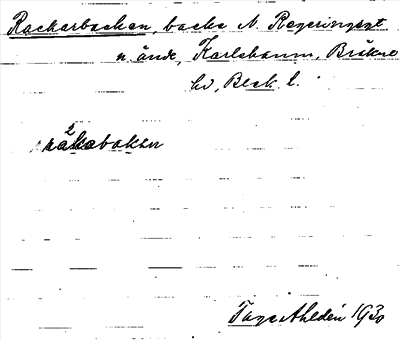 Rackarbacken, backe N. Regeringsgat
n. ände, Karlshamn, Bräkne
hd, Blek. l.
råkabakən
Tage Ahldén 1930